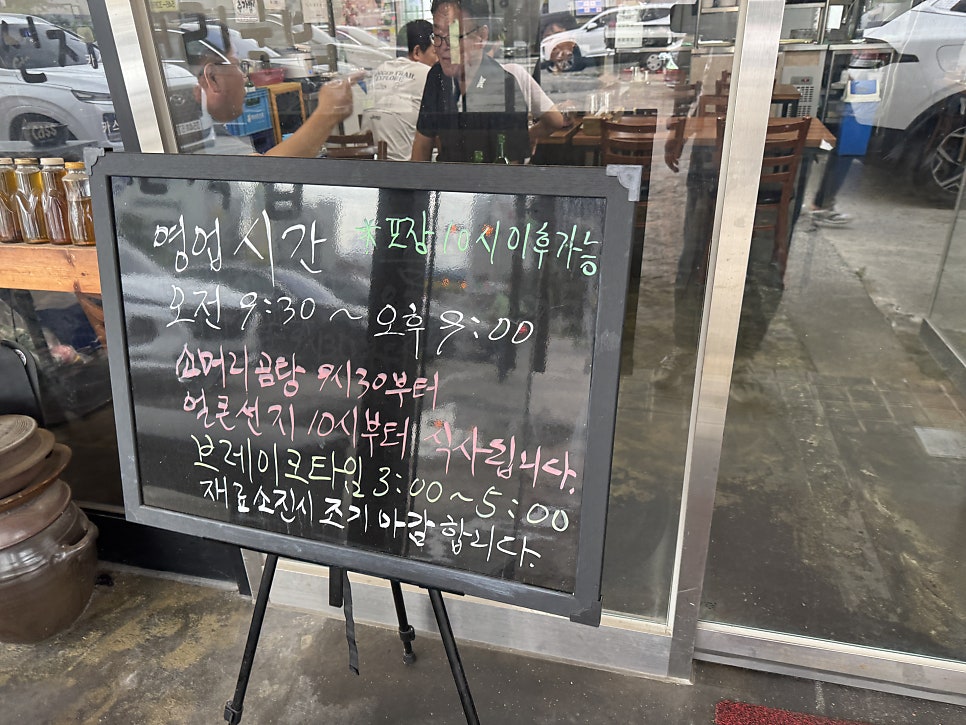 영업시간 *포장 10시이후가능
오전 9:30 ~ 오후 9:00
소머리곰탕 9시30부터
얼큰선지 10시부터 식사됩니다.
브레이크타임 3:00~5:00
재료소진시 조기마감합니다.